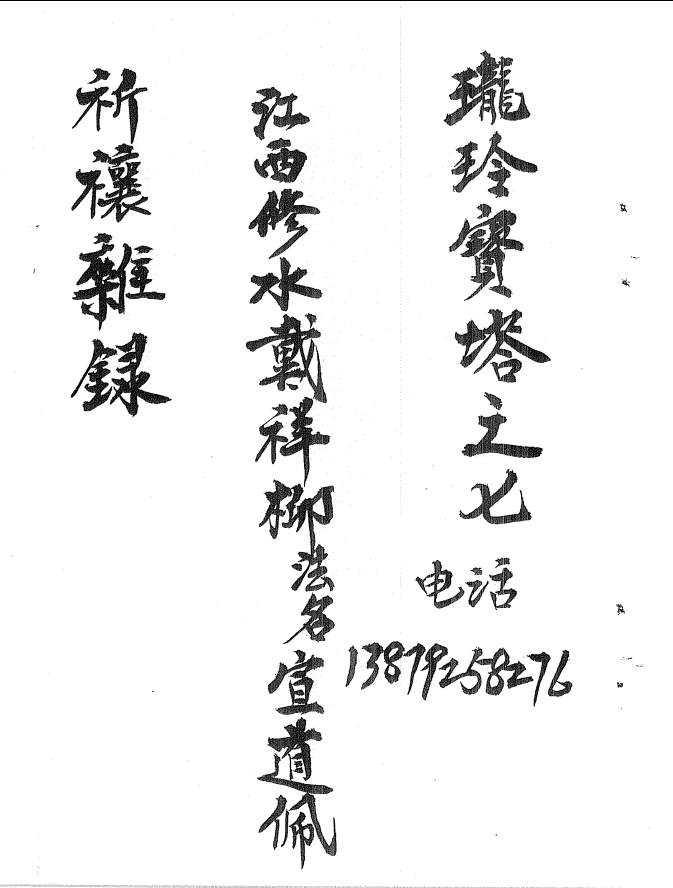 瓏玲寶塔之七
电话
13879258276
江西修水戴祥柳法名宣道佩
祈禳雜録